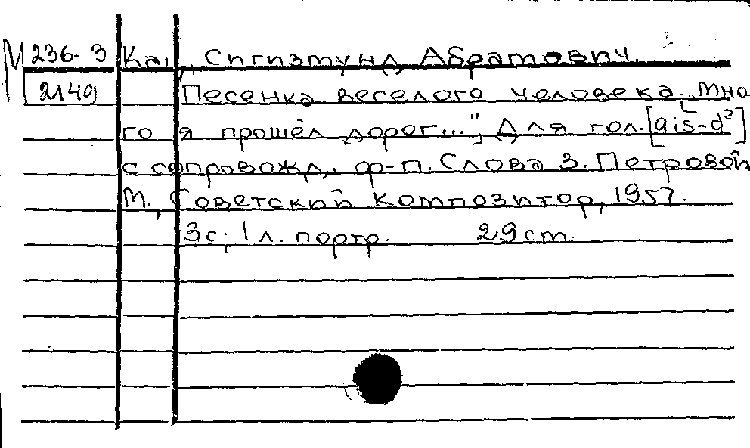 М 236-3 Кац, Сигизмунд Абрамович
2149 Песенка веселого человека. „Мно
го я прошёл дорог...", Для гол. [ais-d²]
с сопровожд. ф-п. Слова З. Петровой
М., Советский композитор, 1957.
3с; 1 л. портр. 29 cm.